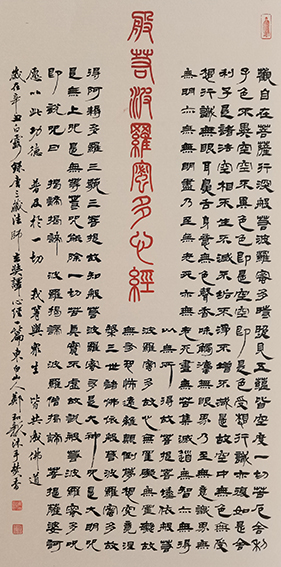 般若波羅蜜多心經
觀自在菩薩行深般若波羅蜜多時照見五蘊皆空度一切苦厄舍利
子色不異空空不異色色即是空空即是色受想行識亦復如是舍
利子是諸法空相不生不滅不垢不淨不增不減是故空中無色無受
想行識無眼耳鼻舌身意無色聲香味觸法無眼界乃至無意識界無
無明亦無無明盡乃至無老死亦無老死盡無苦集滅道無智亦無得
以無所得故菩提薩埵依般若
波羅蜜多故心無罣礙無罣礙故
無有恐怖遠離顛倒夢想究竟涅
槃三世諸佛依般若波羅蜜多故
得阿耨多羅三藐三菩提故知般若波羅蜜多是大神咒是大明咒
是無上咒是無等等咒能除一切苦真實不虛故說般若波羅蜜多咒
即說咒曰 揭諦揭諦 波羅揭諦 波羅僧揭諦 菩提薩婆訶
願以此功德 普及於一切 我等與眾生 皆共成佛道
歲在辛丑 錄唐三藏法師玄奘譯心經一篇 東白山人鄭和 沐手焚香